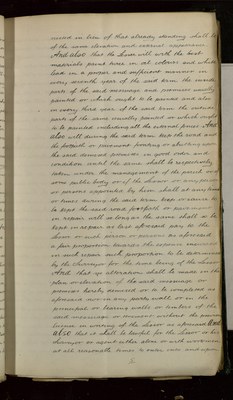 erected in lieu of that already standing shall be
of the same elevation and external appearance
And also that the lessee will with the best
materials paint twice in oil colours and white
lead in a proper and sufficient manner in
every seventh year of the said term the inside
parts of the said messuage and premises usually
painted or which ought to be painted and also
in every third year of the said term the external
parts of the same usually painted or which ought
to be painted including all the external fences And
also will during the said term keep the road and
the footpath or pavement fronting or abutting upon
the said demised premises in good order and
condition until the same shall be respectively
taken under the management of the parish or of
some public body or of the lessor or any person
or persons appointed by him shall at any time
or times during the said term keep or cause to
be kept the said road footpath or pavement
in repair will so long as the same shall so be
kept in repair as last aforesaid pay to the
lessor or such person or persons as aforesaid
a fair proportion towards the expense incurred
in such repair such proportion to be determined
by the Surveyor for the time being of the lessor
And that no alteration shall be made in the
plan or elevation of the said messuage or
premises hereby demised or to be completed as
aforesaid nor in any party walls or in the
principal or bearing walls or timbers of the
said messuage or tenement without the previous
licence in writing of the lessor as aforesaid And
also that it shall be lawful for the lessor or his
Surveyor or agent either alone or with workmen
at all reasonable times to enter into and upon